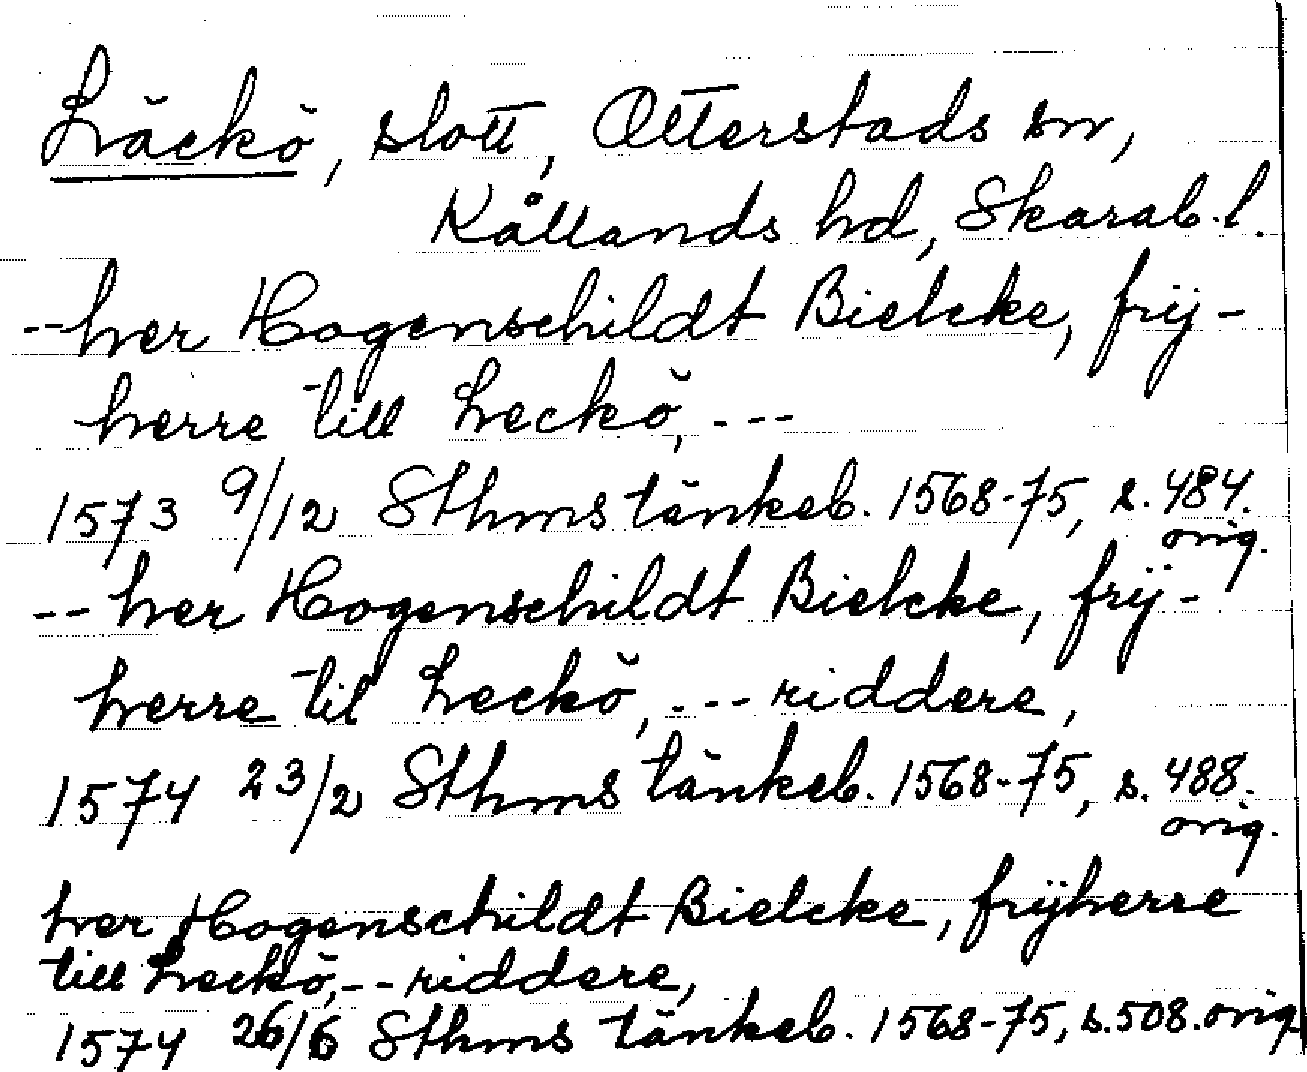 Läckö, slott, Otterstads sn,
Kållands hd, Skarab. l.
-- her Hogenschildt Bielcke, frij-
herre till Leckö, ---
1573 9/12 Sthms tänkeb. 1568-75, s. 484.
orig.
-- her Hogenschildt Bielcke, frij-
herre til Leckö, --- riddere,
1574 23/2 Sthms tänkeb. 1568-75, s. 488.
orig.
her Hogenschildt Bielcke, frijherre
till Leckö, -- riddere,
1574 26/6 Sthms tänkeb. 1568-75, s. 508. orig.